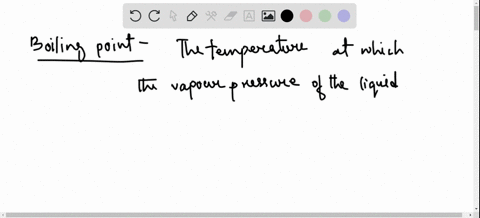 Boiling point - The temperature at which
the vapour pressure of the liquid